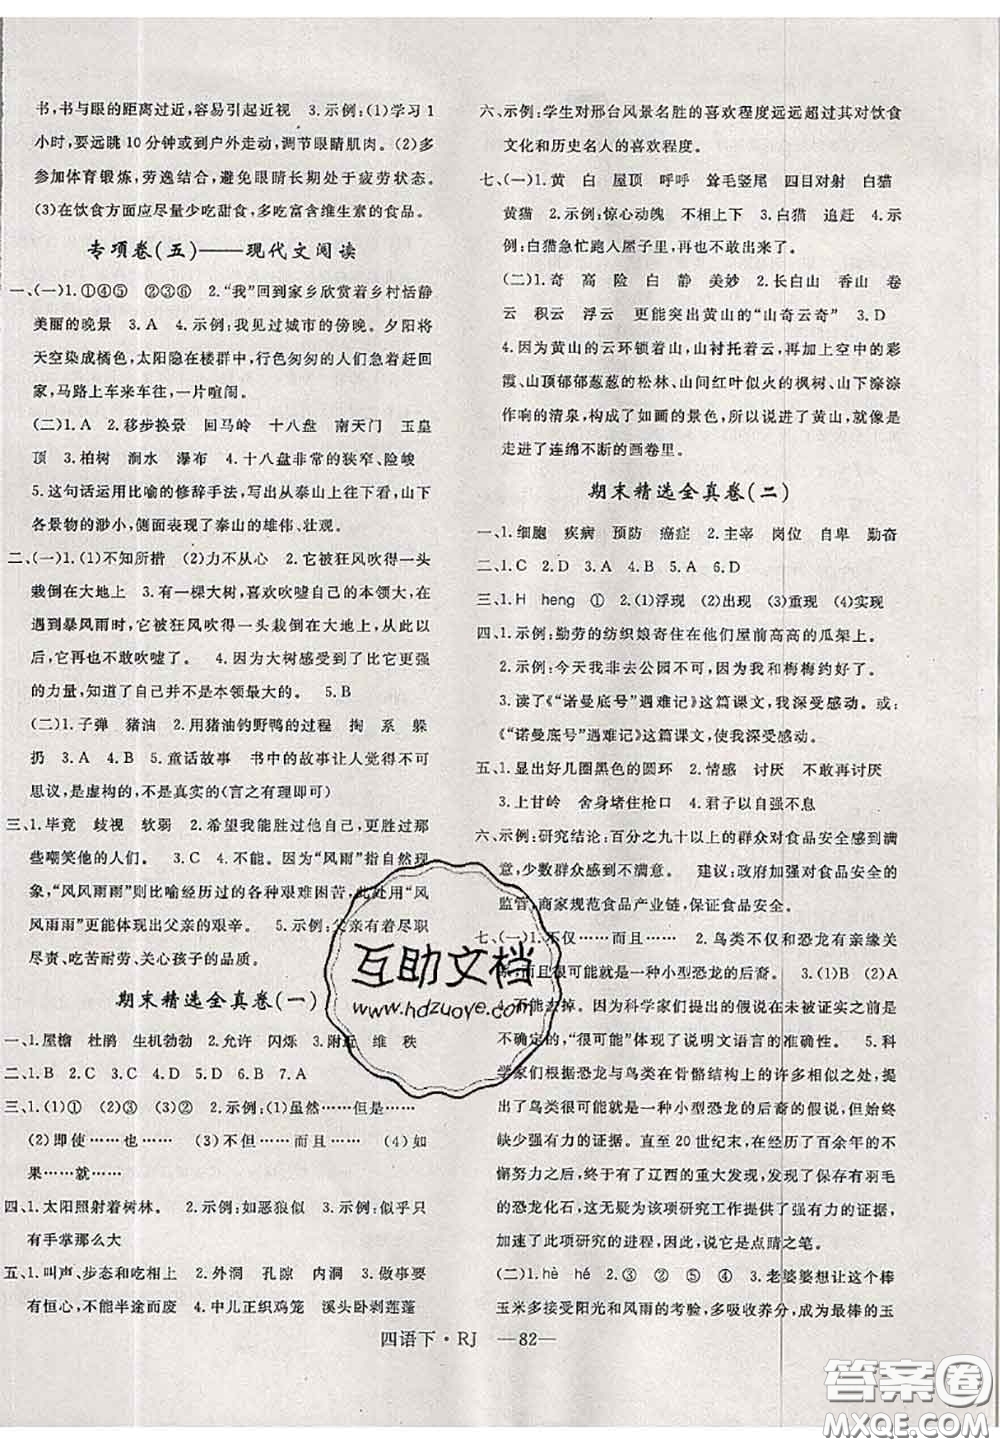 书,书与眼的距离过近,容易引起近视　3.示例:(1)学习1
小时,要远眺10分钟或到户外走动,调节眼睛肌肉。(2)多
参加体育锻炼,劳逸结合,避免眼睛长期处于疲劳状态。
(3)在饮食方面应尽量少吃甜食,多吃富含维生素的食品。
专项卷(五)——现代文阅读
一、(一)1.①④⑤　②③⑥　2.“我”回到家乡欣赏着乡村恬静
美丽的晚景　3.A　4.示例:我见过城市的傍晚。夕阳将
天空染成橘色,太阳隐在楼群中,行色匆匆的人们急着赶回
家,马路上车来车往,一片喧闹。
(二)1.A　2.移步换景　回马岭　十八盘　南天门　玉皇
顶　3.柏树　涧水　瀑布　4.十八盘非常的狭窄、险峻
5.这句话运用比喻的修辞手法,写出了从泰山上往下看,山下
各景物的渺小,侧面表现了泰山的雄伟、壮观。
二、(一)1.(1)不知所措　(2)力不从心　2.它被狂风吹得一头
栽倒在大地上　3.有一棵大树,喜欢吹嘘自己的本领大,在
遇到暴风雨时,它被狂风吹得一头栽倒在大地上,从此以
后,它再也不敢吹嘘了。　4.因为大树感受到了比它更强大
的力量,知道自己并不是本领最大的。　5.B
(二)1.子弹　猪油　2.用猪油钓野鸭的过程　掏　系　躲
扔　3.A　4.B　5.童话故事　书中的故事让人觉得不可
思议,是虚构的,不是真实的(言之有理即可)
三、1.毕竟　歧视　软弱　2.希望我能胜过你们,更胜过那
些嘲笑他的人们。　3.C　4.不能。因为“风雨”只是自然现
象,“风风雨雨”则比喻经历过的各种艰难困苦,此处用“风
风雨雨”更能体现出父亲的艰辛。　5.示例:父亲有着尽职
尽责、吃苦耐劳、关心孩子的品质。
期末精选全真卷(一)
一、1.屋檐　杜鹃　生机勃勃　2.允许　闪烁　3.附近　维　秩
二、1.B　2.C　3.A　4.B　5.C　6.B　7.A
三、1.(1)①　(2)③　(3)②　2.示例:(1)虽然……但是……
(2)即使……也……　(3)不但……而且……　(4)如
果……就……
四、1.太阳照射着树林。　2.示例:如恶狼似　3.示例:似乎只
有手掌那么大
五、1.叫声、步态和吃相上　2.外洞　孔隙　内洞　3.做事要
有恒心,不能半途而废　4.中儿正织鸡笼　溪头卧剥莲蓬
六、示例:学生对邢台风景名胜的喜欢程度远远超过其对饮食
文化和历史名人的喜欢程度。
七、(一)1.黄　白　屋顶　呼呼　耸毛竖尾　四目对射　白猫
黄猫　2.示例:惊心动魄　不相上下　3.白猫　追赶　4.示
例:白猫急忙跑入屋子里,再也不敢出来了。
(二)1.奇　高　险　白　静　美妙　2.长白山　香山　卷
云　积云　浮云　更能突出黄山的“山奇云奇”　3.D
4.因为黄山的云环锁着山,山衬托着云,再加上空中的彩
霞、山顶郁郁葱葱的松林、山间红叶似火的枫树、山下淙淙
作响的清泉,构成了如画的景色,所以说进了黄山,就像是
走进了连绵不断的画卷里。
期末精选全真卷(二)
一、1.细胞　疾病　预防　癌症　2.主宰　岗位　自卑　勤奋
二、1.C　2.D　3.A　4.B　5.A　6.D
三、1.H　heng　①　2.(1)浮现　(2)出现　(3)重现　(4)实现
四、1.示例:勤劳的纺织娘寄住在他们屋前高高的瓜架上。
2.示例:今天我非去公园不可,因为我和梅梅约好了。
3.读了《“诺曼底号”遇难记》这篇课文,我深受感动。或:
《“诺曼底号”遇难记》这篇课文,使我深受感动。
五、1.显出好几圈黑色的圆环　2.情感　讨厌　不敢再讨厌
3.上甘岭　舍身堵住枪口　4.君子以自强不息
六、示例:研究结论:百分之九十以上的群众对食品安全感到满
意,少数群众感到不满。　建议:政府加强对食品安全的
监管,商家规范食品产业链,保证食品安全。
七、(一)1.不仅……而且……　2.鸟类不仅和恐龙有亲缘关
系,而且很可能就是一种小型恐龙的后裔。　3.(1)B　(2)A
4.不能去掉。因为科学家们提出的假说在未被证实之
前,“很可能”体现了说明文语言的准确性。　5.科
学家们在研究恐龙与鸟类在骨骼结构上的许多相似之后,
出了鸟类很可能就是一种小型恐龙的后裔的假说,但始终
缺少强有力的证据。直至20世纪末,在经历了百余年的不
懈努力之后,终于有了辽西的重大发现,发现了保存有羽毛
的恐龙化石,这无疑为该项研究工作提供了强有力的证据,
加速了该项研究的进程,因此说它是点睛之笔。
(二)1.hè　hé　2.③　②　④　⑤　3.老婆婆想让这个棒
玉米多接受阳光和风雨的考验,多吸收养分,成为最棒的玉
四语下·RJ　—82—
互助文档
www.hdzuoye.com
答案圈
MXQE.COM